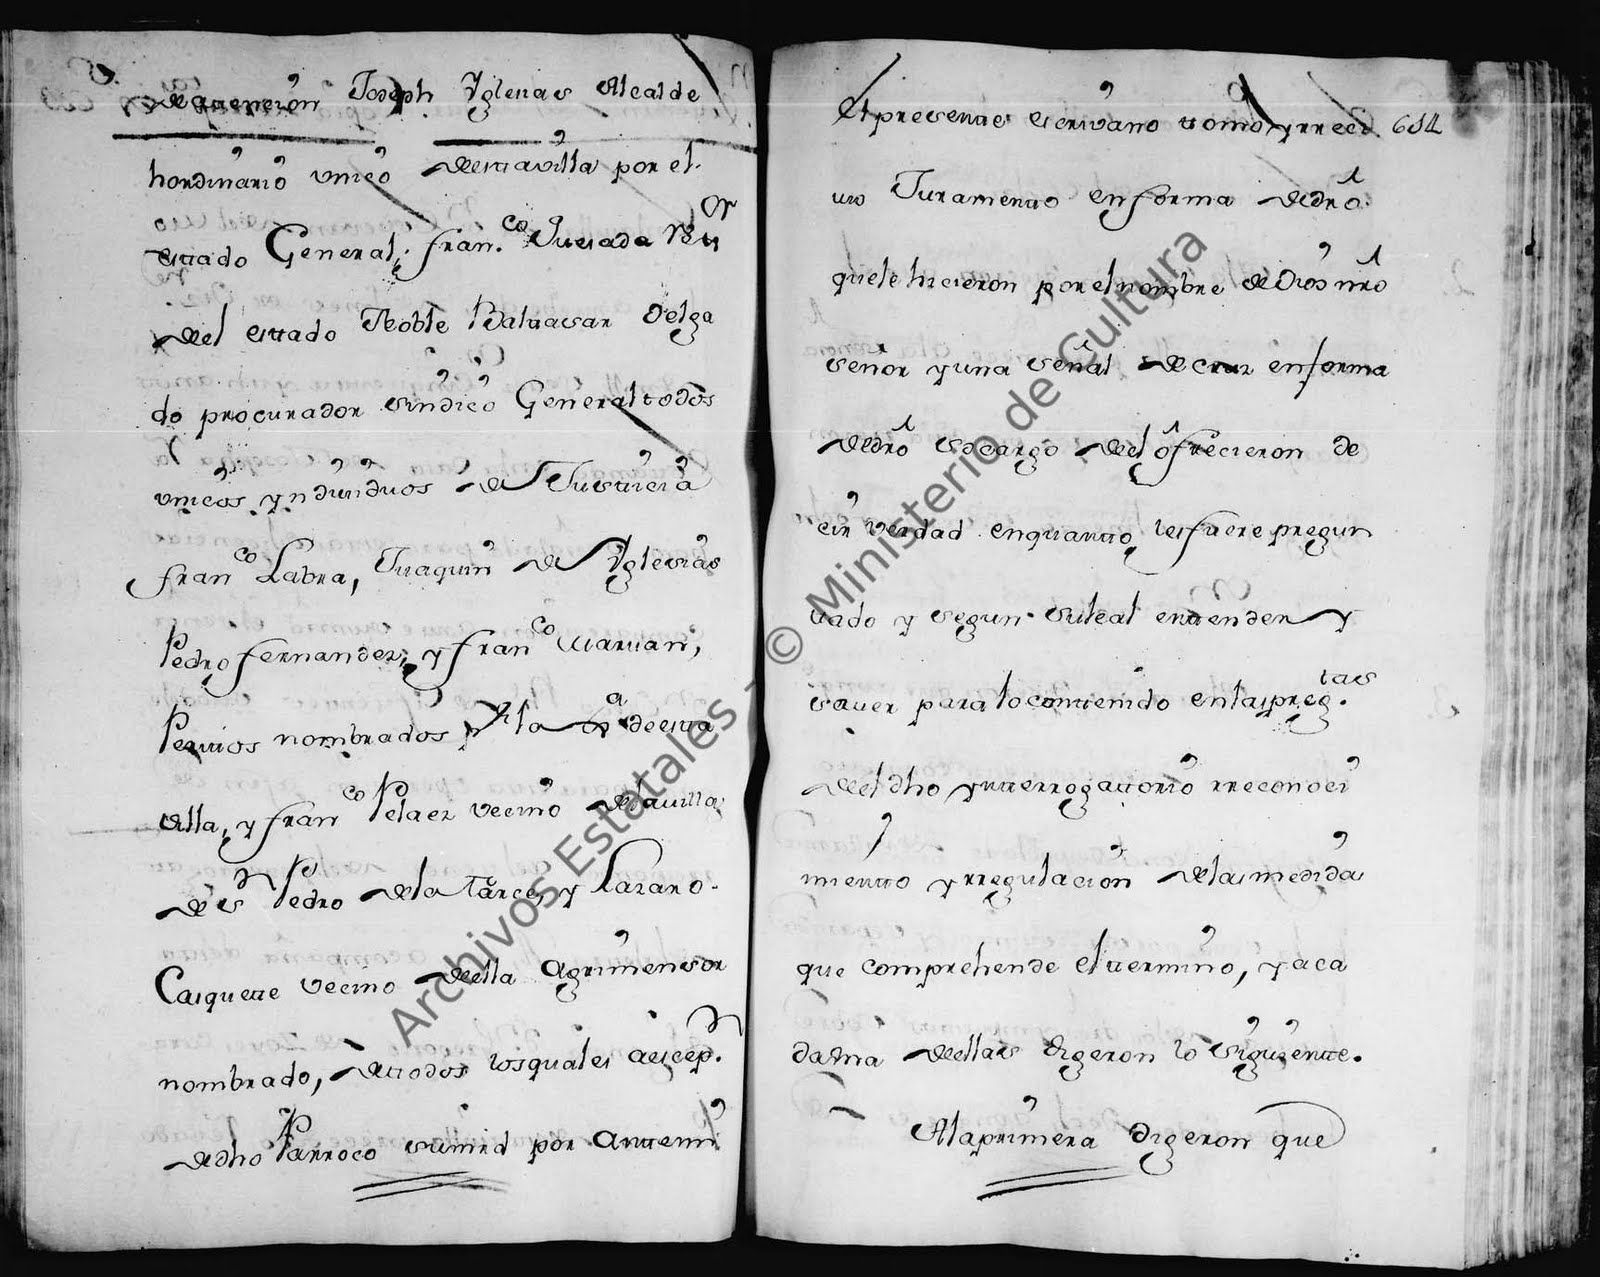 de atencion Joseph Yglesias Alcalde
hordinario vnico destavilla por el
estado General, fran.co Quesada Rexor
del estado Noble Baltasar Delga
do procurador sindico General todos
vnicos yndiuiduos de Justicia
fran.co Labra, Juaquin de Yglesias
Pedro fernandez, y fran.co Martian,
Peritos nombrados Pr la Va de esta
villa, y fran.co Pelaez vecino de la villa
de Sn Pedro de la Tarce, y Lazaro
Casquette vecino de ella Agrimensor
nombrado, de todos los quales aescep.n
de dho Parroco su mrd por Antemi
el presente escrivano tomo y rreci 614
vio Juramento en forma de dro
que le hicieron por el nombre de Dios nro
señor y una señal de cruz en forma
de dro so cargo del ofrecieron de
cir verdad en quanto les fuere pregun
tado y segun su leal entender y
sauer para lo contenido en las preg.tas
del dho ynterrogattorio rreconoci
miento y rregulacion de las medidas
que comprehende el termino, y a ca
da vna de ellas digeron lo siguiente.
A la primera digeron que
Archivos Estatales - © Ministerio de Cultura